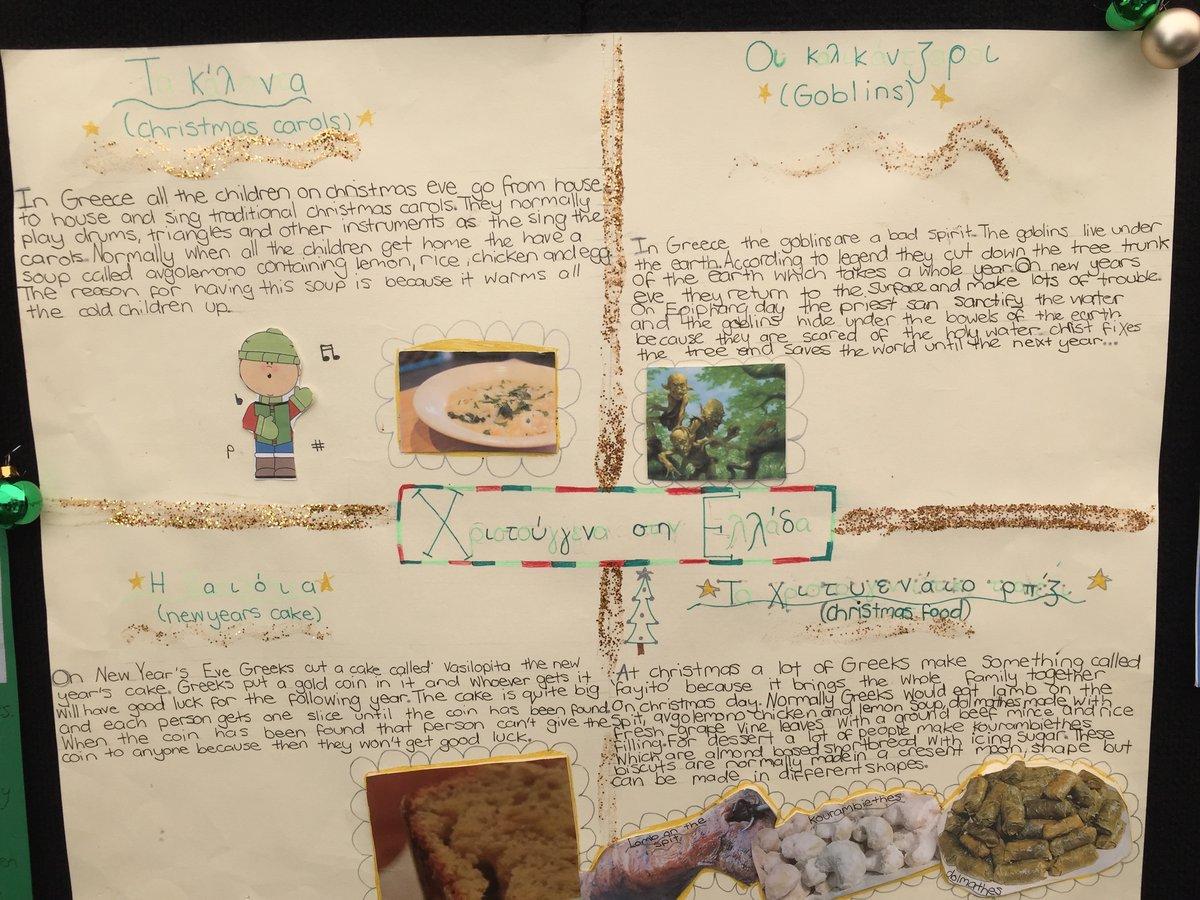 Τα κάλαντα
(christmas carols)
In Greece all the children on christmas eve go from house
to house and sing traditional christmas carols. They normally
play drums, triangles and other instruments as the sing the
carols. Normally when all the children get home the have a
soup called avgolemono containing lemon, rice, chicken and egg
The reason for having this soup is because it warms all
the cold children up.
Οι καλικάντζαροι
(Goblins)
In Greece the goblins are a bad spirit. The goblins live under
the earth. According to legend they cut down the tree trunk
of the earth which takes a whole year. On new years
eve they return to the surface and make lots of trouble.
On Epiphany day the priest san sanctify the water
and the goblins hide under the bowels of the earth
because they are scared of the holy water. christ fixes
the tree and saves the world until the next year...
Χριστούγεννα στην Ελλάδα
(newyears cake)
On New Year's Eve Greeks cut a cake called Vasilopita the new
year's cake. Greeks put a gold coin in it and whoever gets it
will have good luck for the following year. The cake is quite big
and each person gets one slice until the coin has been found.
When the coin has been found that person can't give the
coin to anyone because then they won't get good luck.
Το χριστουγεννιάτικο τραπέζι
(christmas food)
At christmas a lot of Greeks make something called
fayito because it brings the whole family together
on christmas day. Normally Greeks would eat lamb on the
spit, avgolemono chicken and lemon soup, dolmathes made with
fresh grape vine leaves with a ground beef mince and rice
filling. For dessert a lot of people make kourambiethes
which are almond based shortbread with icing sugar. These
biscuts are normally made in a cresent moon shape but
can be made in different shapes.
Lamb on the
spit
kourambiethes
dolmathes